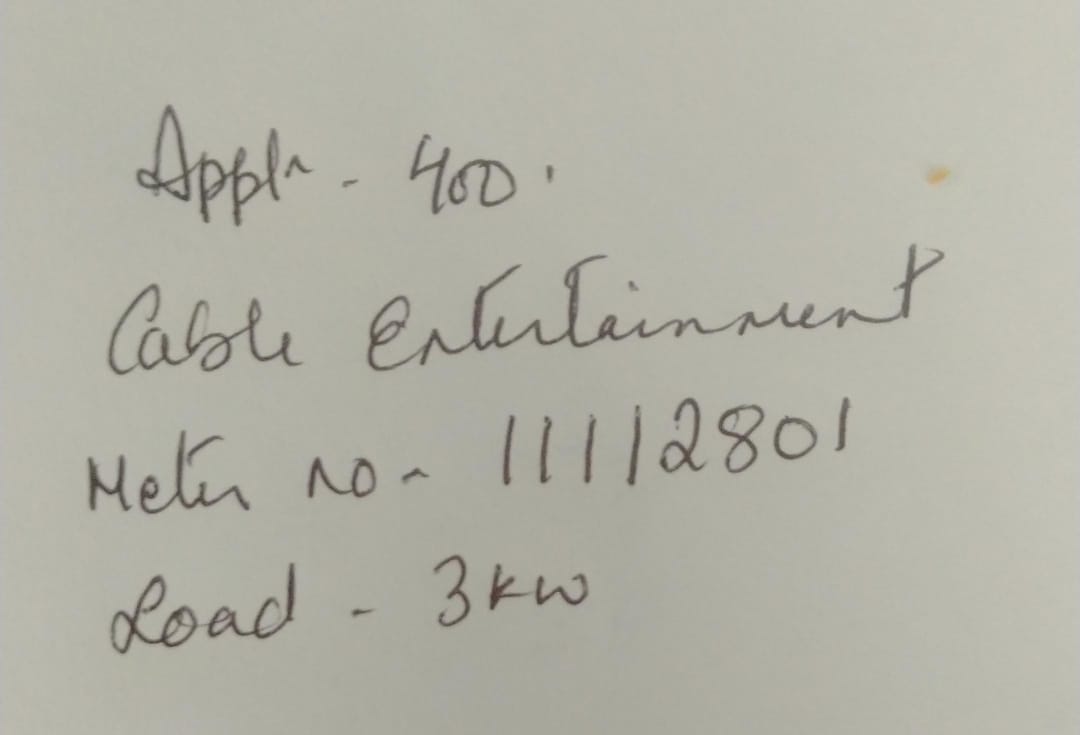 Appln - 400.
Cable Entertainment
Meter no - 11112801
Load - 3kw